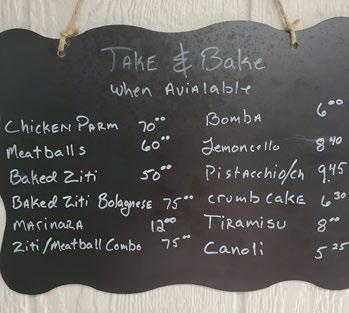 Take & Bake
when Avialable
Chicken Parm 70⁰⁰
Meatballs 60⁰⁰
Baked Ziti 50⁰⁰
Baked Ziti Bolagnese 75⁰⁰
Marinara 12⁰⁰
Ziti/Meatball Combo 75⁰⁰
Bomba 6⁰⁰
Lemoncello 8⁴⁰
Pistacchio/ch 9.45
crumb cake 6³⁰
Tiramisu 8⁰⁰
Canoli 5²⁵